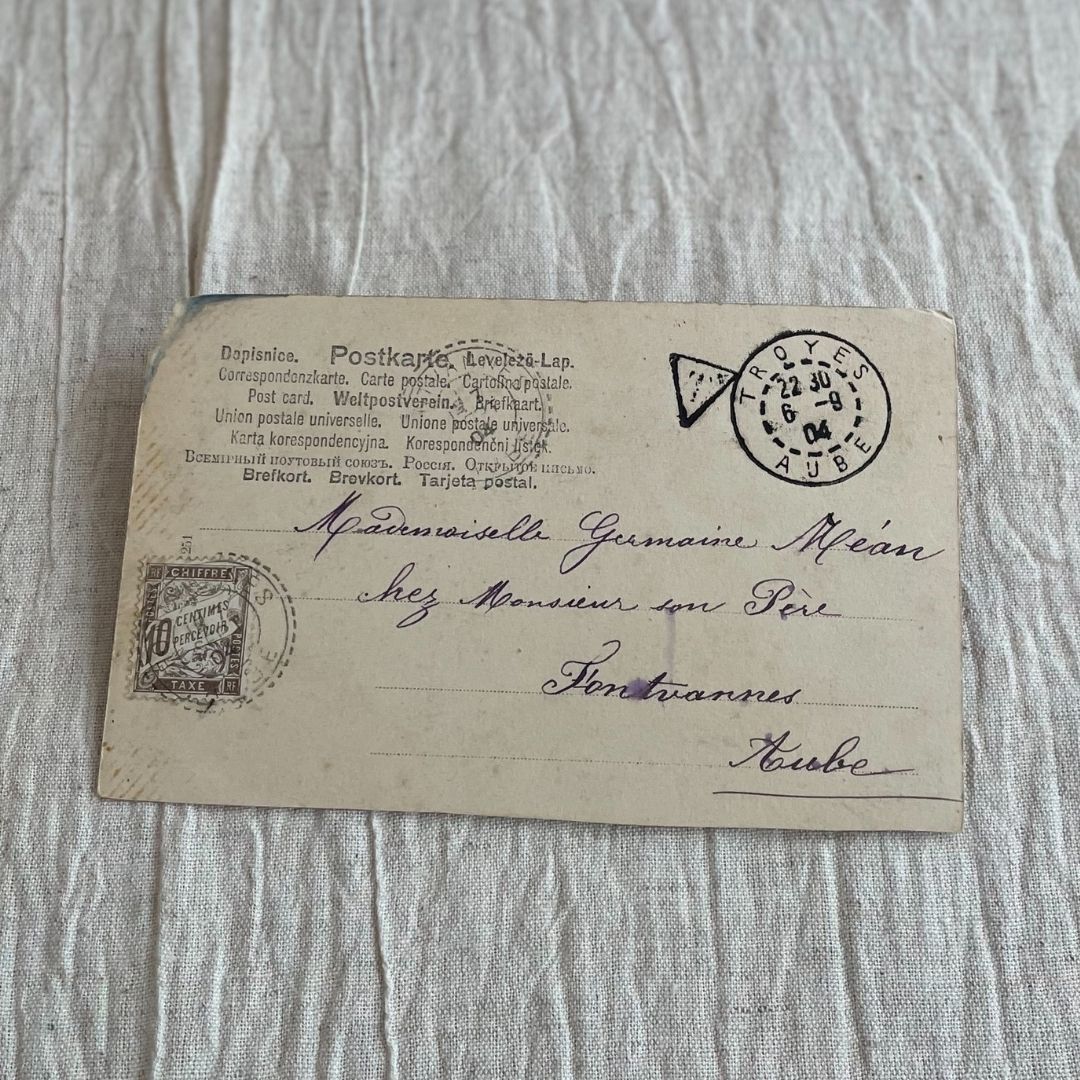 Dopisnice. Postkarte. Levelező-Lap.
Correspondenzkarte. Carte postale. Cartolina postale.
Post card. Weltpostverein. Briefkaart.
Union postale universelle. Unione postale universale.
Karta korespondencyjna. Korespondenční lístek.
Всемірный почтовый союзъ. Россія. Открытое письмо.
Brefkort. Brevkort. Tarjeta postal.
TROYES
22 30
6 -9
04
AUBE
7
04
Mademoiselle Germaine Méan
chez Monsieur son Père
Fontvannes
Aube
251
RF CHIFFRE
10 CENTIMES
A PERCEVOIR
POSTES
TAXE RF